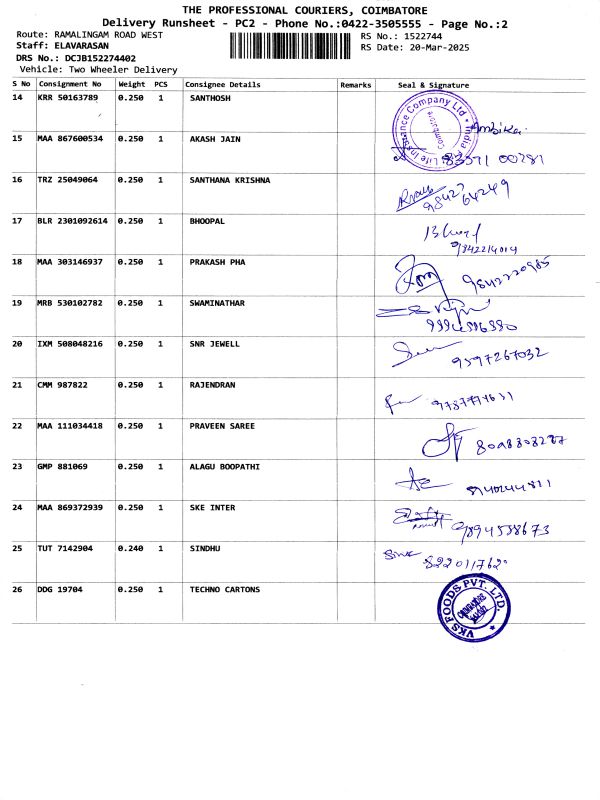 THE PROFESSIONAL COURIERS, COIMBATORE
Delivery Runsheet - PC2 - Phone No.:0422-3505555 - Page No.:2
Route: RAMALINGAM ROAD WEST RS No.: 1522744
Staff: ELAVARASAN RS Date: 20-Mar-2025
DRS No.: DCJB152274402
Vehicle: Two Wheeler Delivery
S No Consignment No Weight PCS Consignee Details Remarks Seal & Signature
14 KRR 50163789 0.250 1 SANTHOSH Ambika
15 MAA 867600534 0.250 1 AKASH JAIN
16 TRZ 25049064 0.250 1 SANTHANA KRISHNA 98427 64249
17 BLR 2301092614 0.250 1 BHOOPAL
9842214014
18 MAA 303146937 0.250 1 PRAKASH PHA 9842220985
19 MRB 530102782 0.250 1 SWAMINATHAR
20 IXM 508048216 0.250 1 SNR JEWELL 9597267032
21 CMM 987822 0.250 1 RAJENDRAN
22 MAA 111034418 0.250 1 PRAVEEN SAREE
23 GMP 881069 0.250 1 ALAGU BOOPATHI
24 MAA 869372939 0.250 1 SKE INTER 9894538673
25 TUT 7142904 0.240 1 SINDHU
26 DDG 19704 0.250 1 TECHNO CARTONS VKS FOODS PVT. LTD.